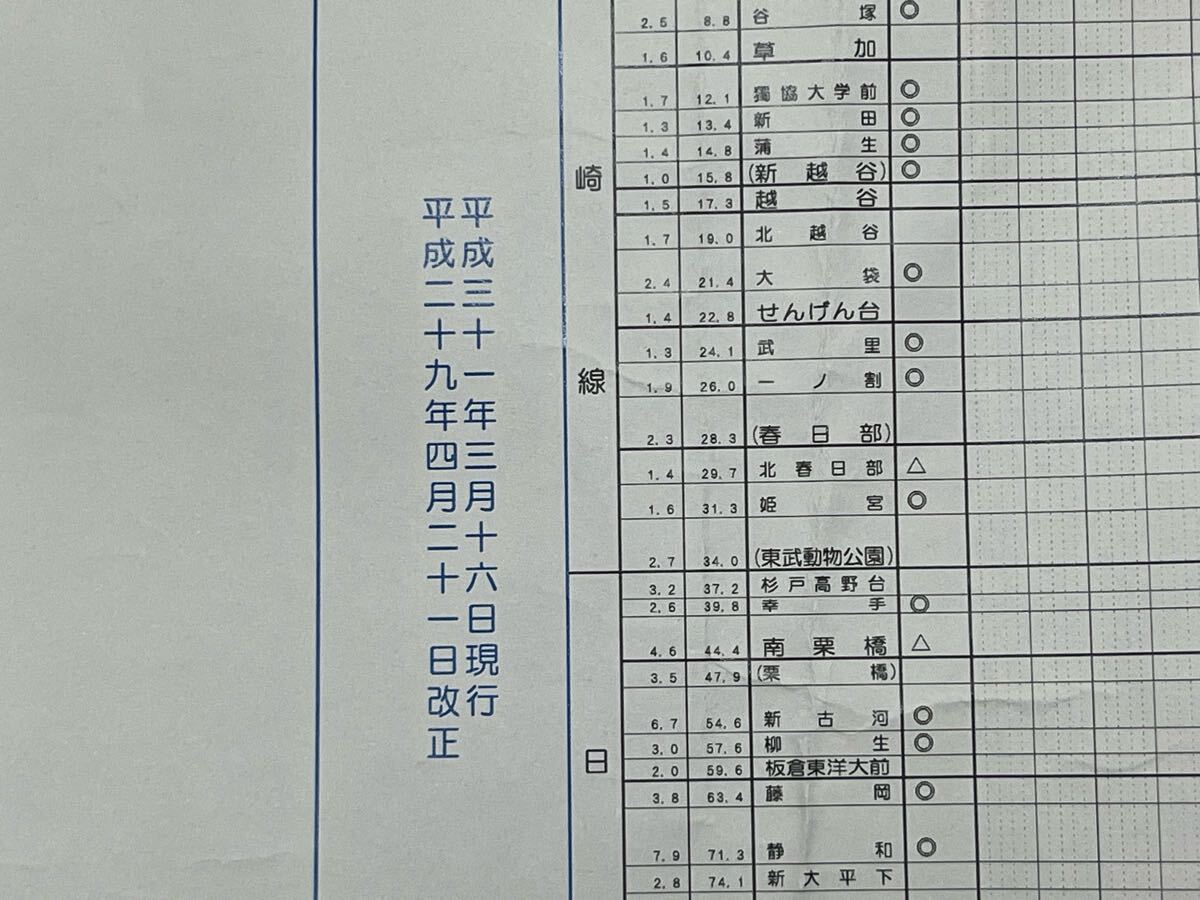 平成三十一年三月十六日現行
平成二十九年四月二十一日改正
崎線
日
2.5 8.8 谷塚 ◎
1.6 10.4 草加
1.7 12.1 獨協大学前 ◎
1.3 13.4 新田 ◎
1.4 14.8 蒲生 ◎
1.0 15.8 (新越谷) ◎
1.5 17.3 越谷
1.7 19.0 北越谷
2.4 21.4 大袋 ◎
1.4 22.8 せんげん台
1.3 24.1 武里 ◎
1.9 26.0 一ノ割 ◎
2.3 28.3 (春日部)
1.4 29.7 北春日部 △
1.6 31.3 姫宮 ◎
2.7 34.0 (東武動物公園)
3.2 37.2 杉戸高野台
2.6 39.8 幸手 ◎
4.6 44.4 南栗橋 △
3.5 47.9 (栗橋)
6.7 54.6 新古河 ◎
3.0 57.6 柳生 ◎
2.0 59.6 板倉東洋大前
3.8 63.4 藤岡 ◎
7.9 71.3 静和 ◎
2.8 74.1 新大平下